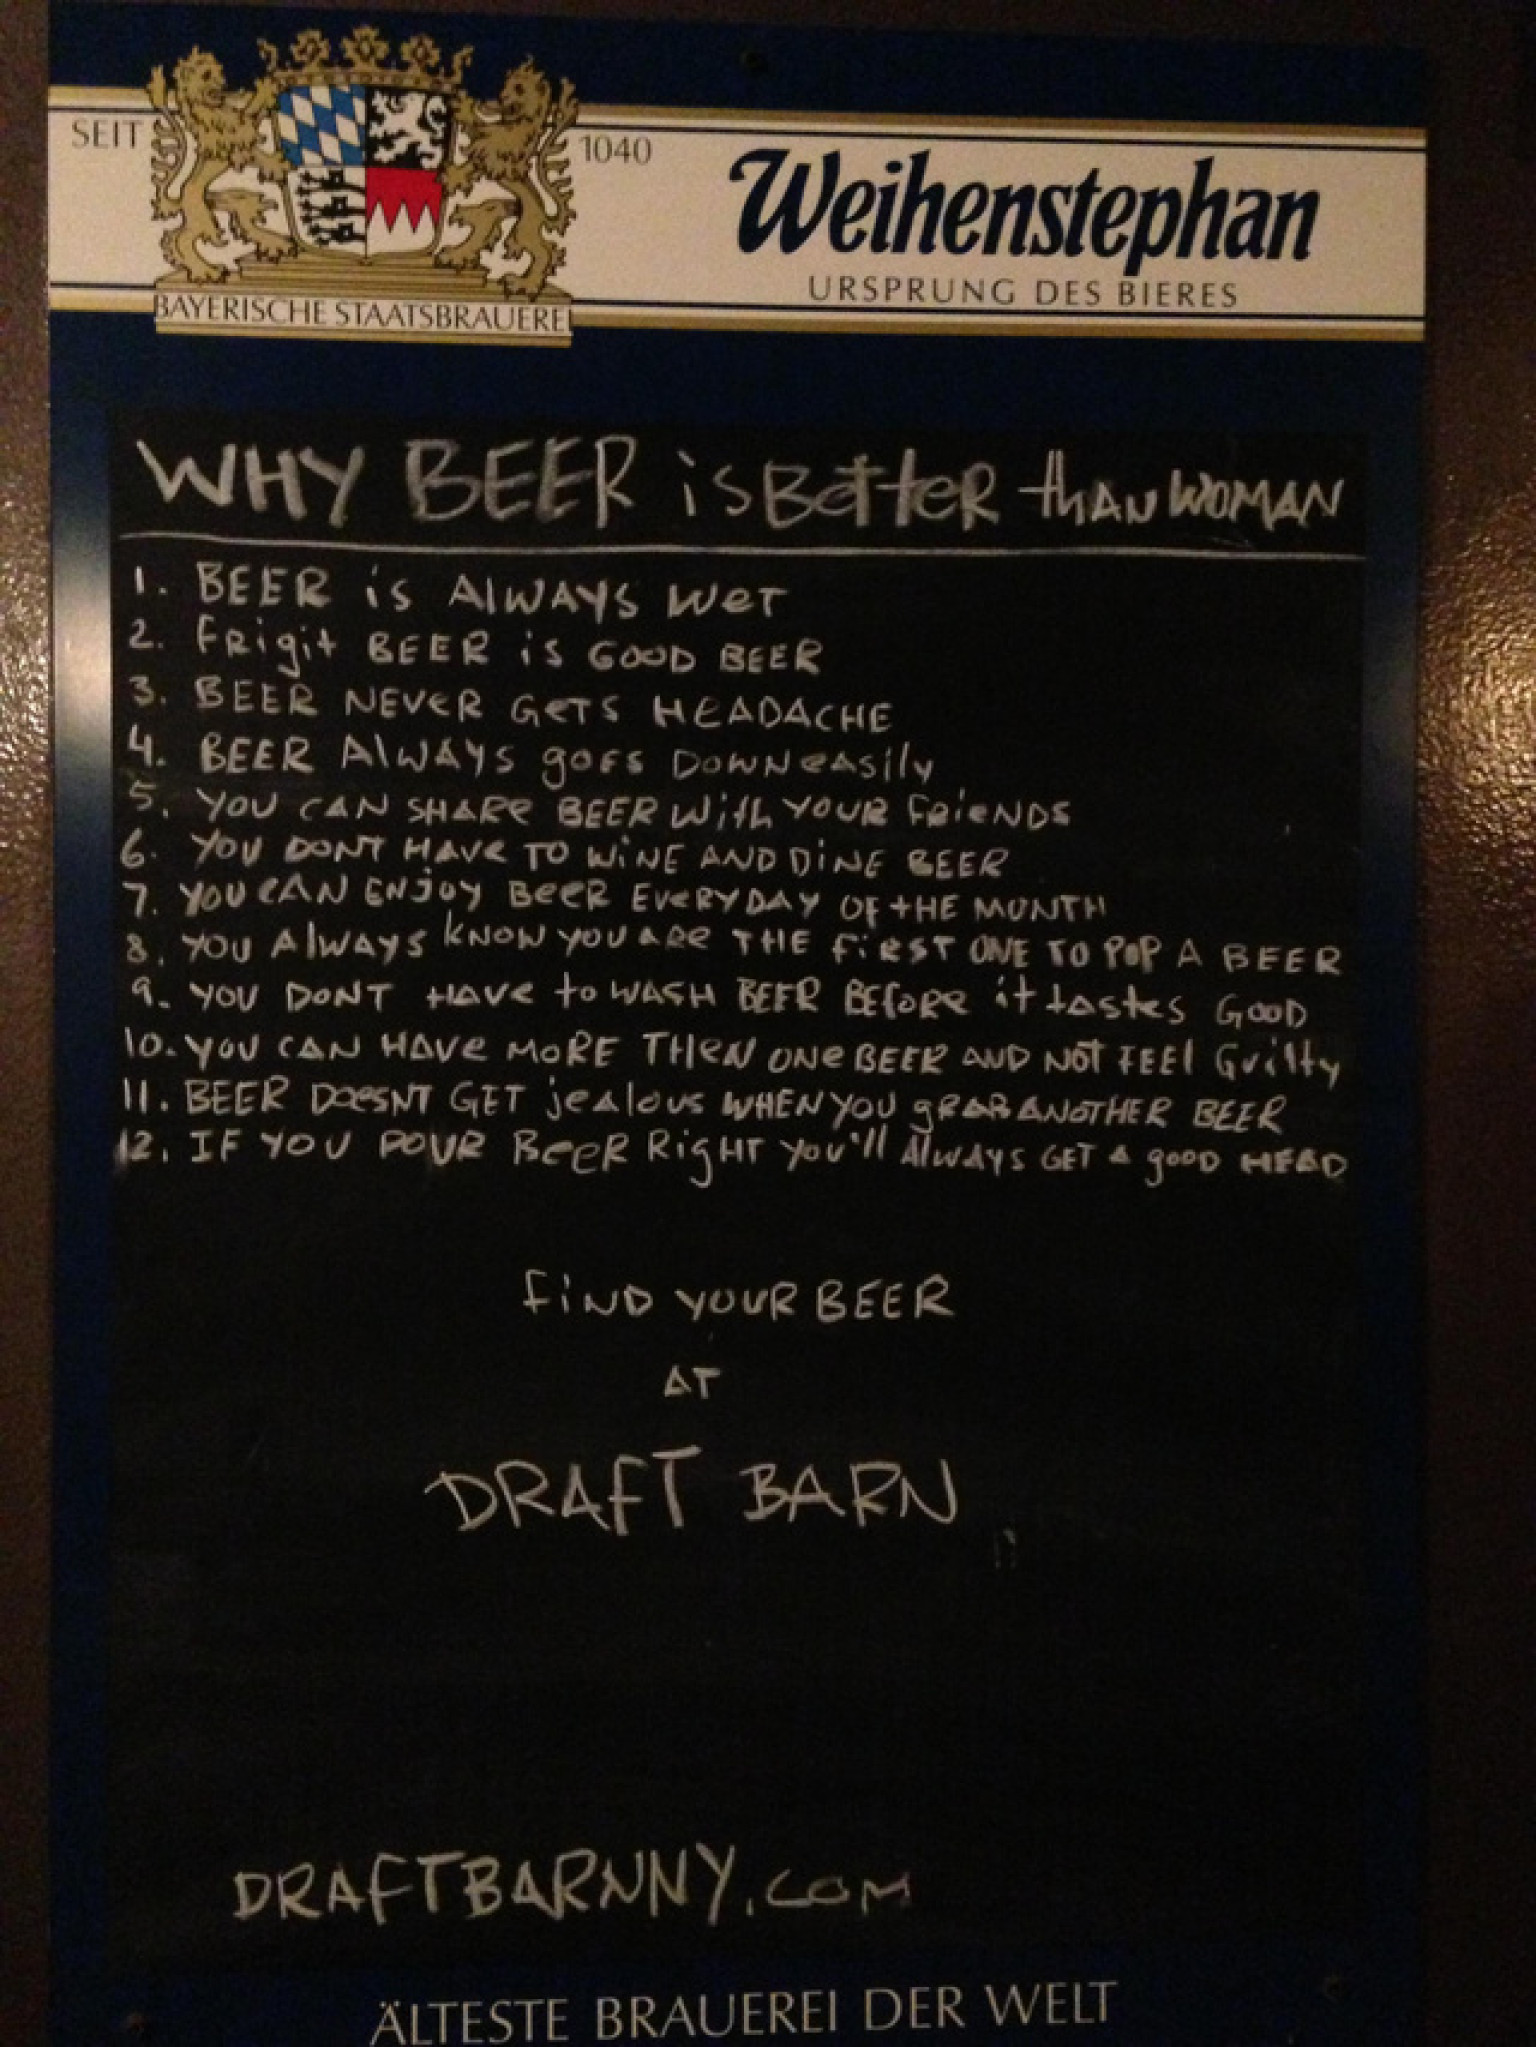 SEIT 1040
Weihenstephan
URSPRUNG DES BIERES
BAYERISCHE STAATSBRAUEREI
WHY BEER is Better than WOMAN
1. BEER is Always Wet
2. Frigit BEER is GOOD BEER
3. BEER NEVER GETS HEADACHE
4. BEER Always goes DOWN easily
5. YOU CAN SHARE BEER With YOUR FRiENDS
6. YOU DONT HAVE TO WiNE AND DiNE BEER
7. YOU CAN ENjOY BEER EVERYDAY OF tHE MONTH
8. YOU Always KNOW YOU ARE THE FiRST ONE TO POP A BEER
9. YOU DONT HAVE to WASH BEER BEFORE it tastes GOOD
10. YOU CAN HAVE MORE THEN ONE BEER AND NOT FEEl Guilty
11. BEER DOESNT GET jealous WHEN YOU gRAB ANOTHER BEER
12. IF YOU POUR BEER RigHT YOU'll Always GET A gOOD HEAD
FiND YOUR BEER
AT
DRAFT BARN
DRAFTBARNNY.COM
ÄLTESTE BRAUEREI DER WELT